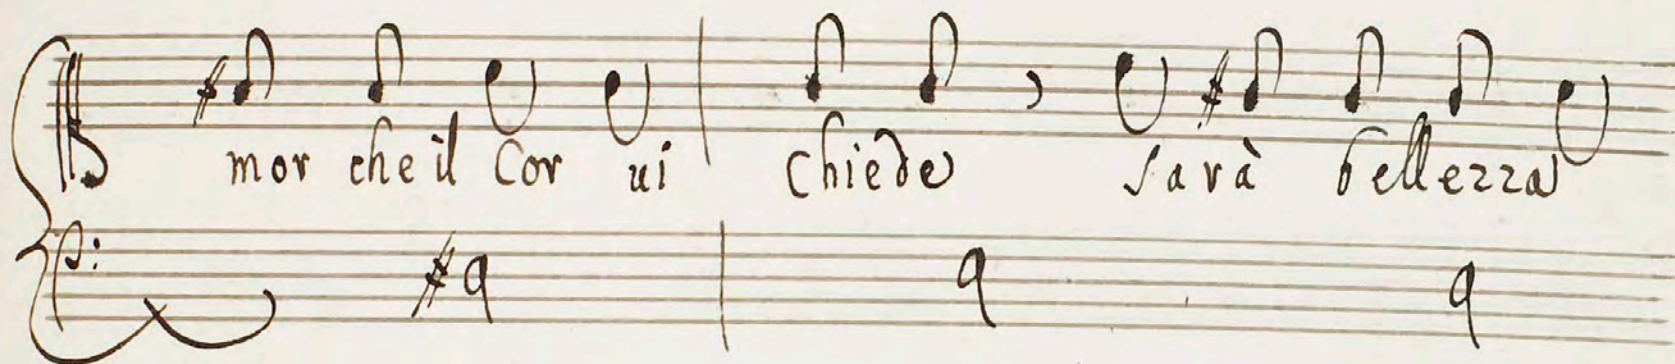 mor che il Cor ui chiede sarà bellezza